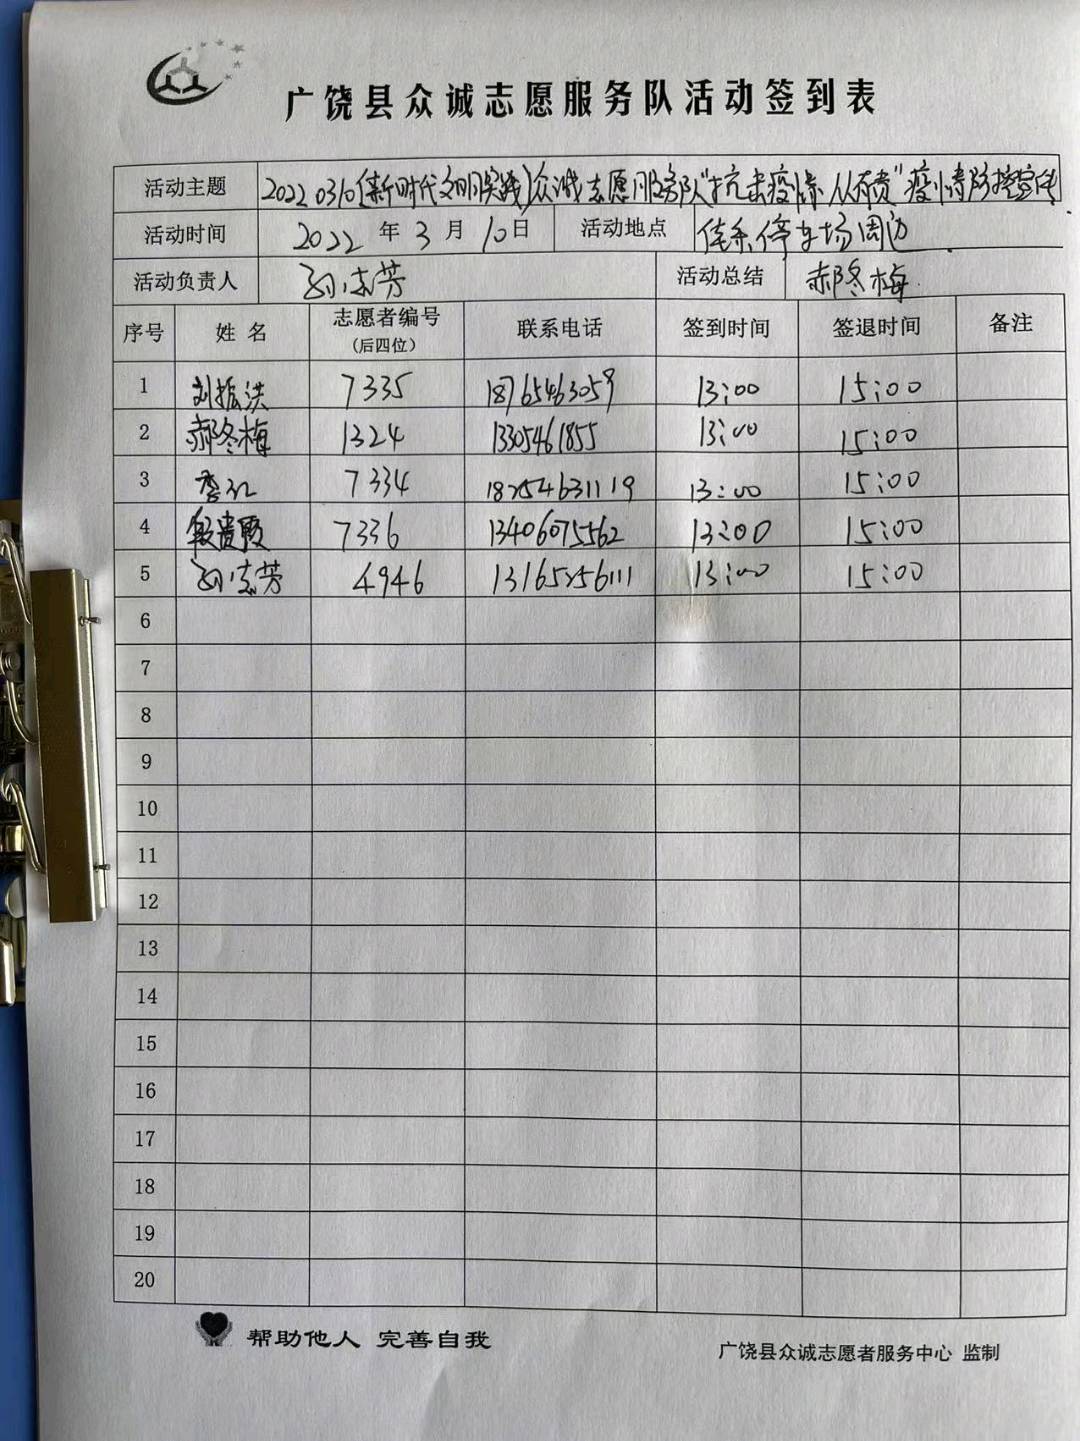 广饶县众诚志愿服务队活动签到表
活动主题 20220310(新时代文明实践)众诚志愿服务队"抗击疫情 人有责"疫情防控宣传
活动时间 2022年3月10日 活动地点 停车场周边
活动负责人 孙志芳 活动总结 郝冬梅
序号 姓名 志愿者编号(后四位) 联系电话 签到时间 签退时间 备注
1 刘振洪 7335 18765463059 13:00 15:00
2 郝冬梅 1324 13305461855 13:00 15:00
3 7334 18254631119 13:00 15:00
4 段贵霞 7336 13406075562 13:00 15:00
5 孙志芳 4946 13165256111 13:00 15:00
6
7
8
9
10
11
12
13
14
15
16
17
18
19
20
帮助他人 完善自我
广饶县众诚志愿者服务中心 监制